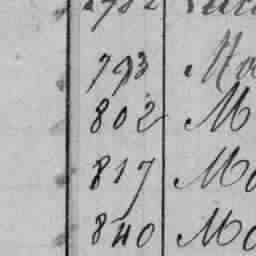 793 Mo
802 M
817 Mo
840 Mo